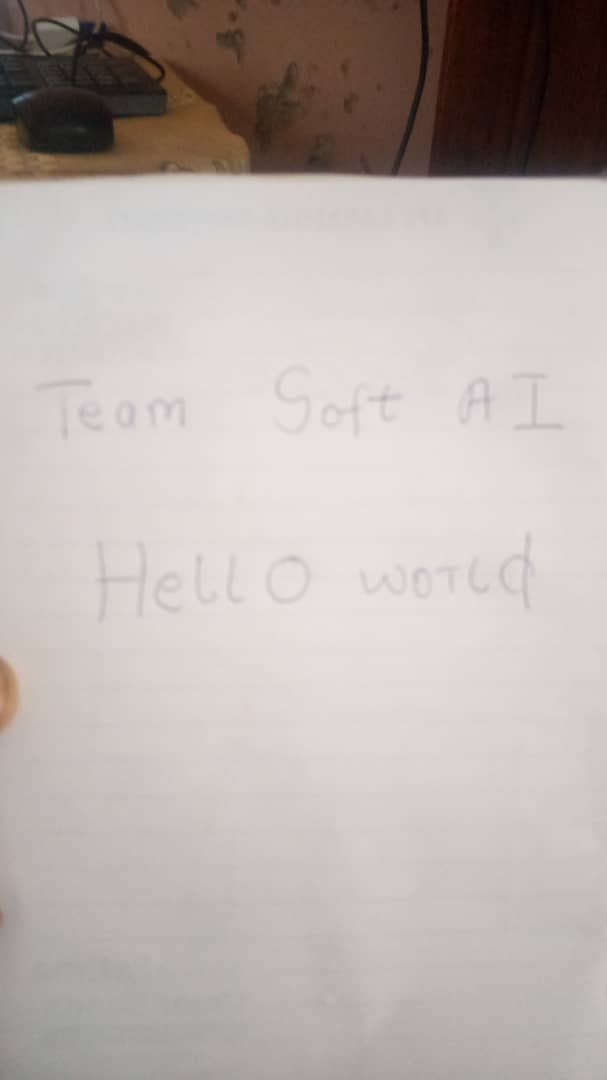 Team Soft AI
Hello world